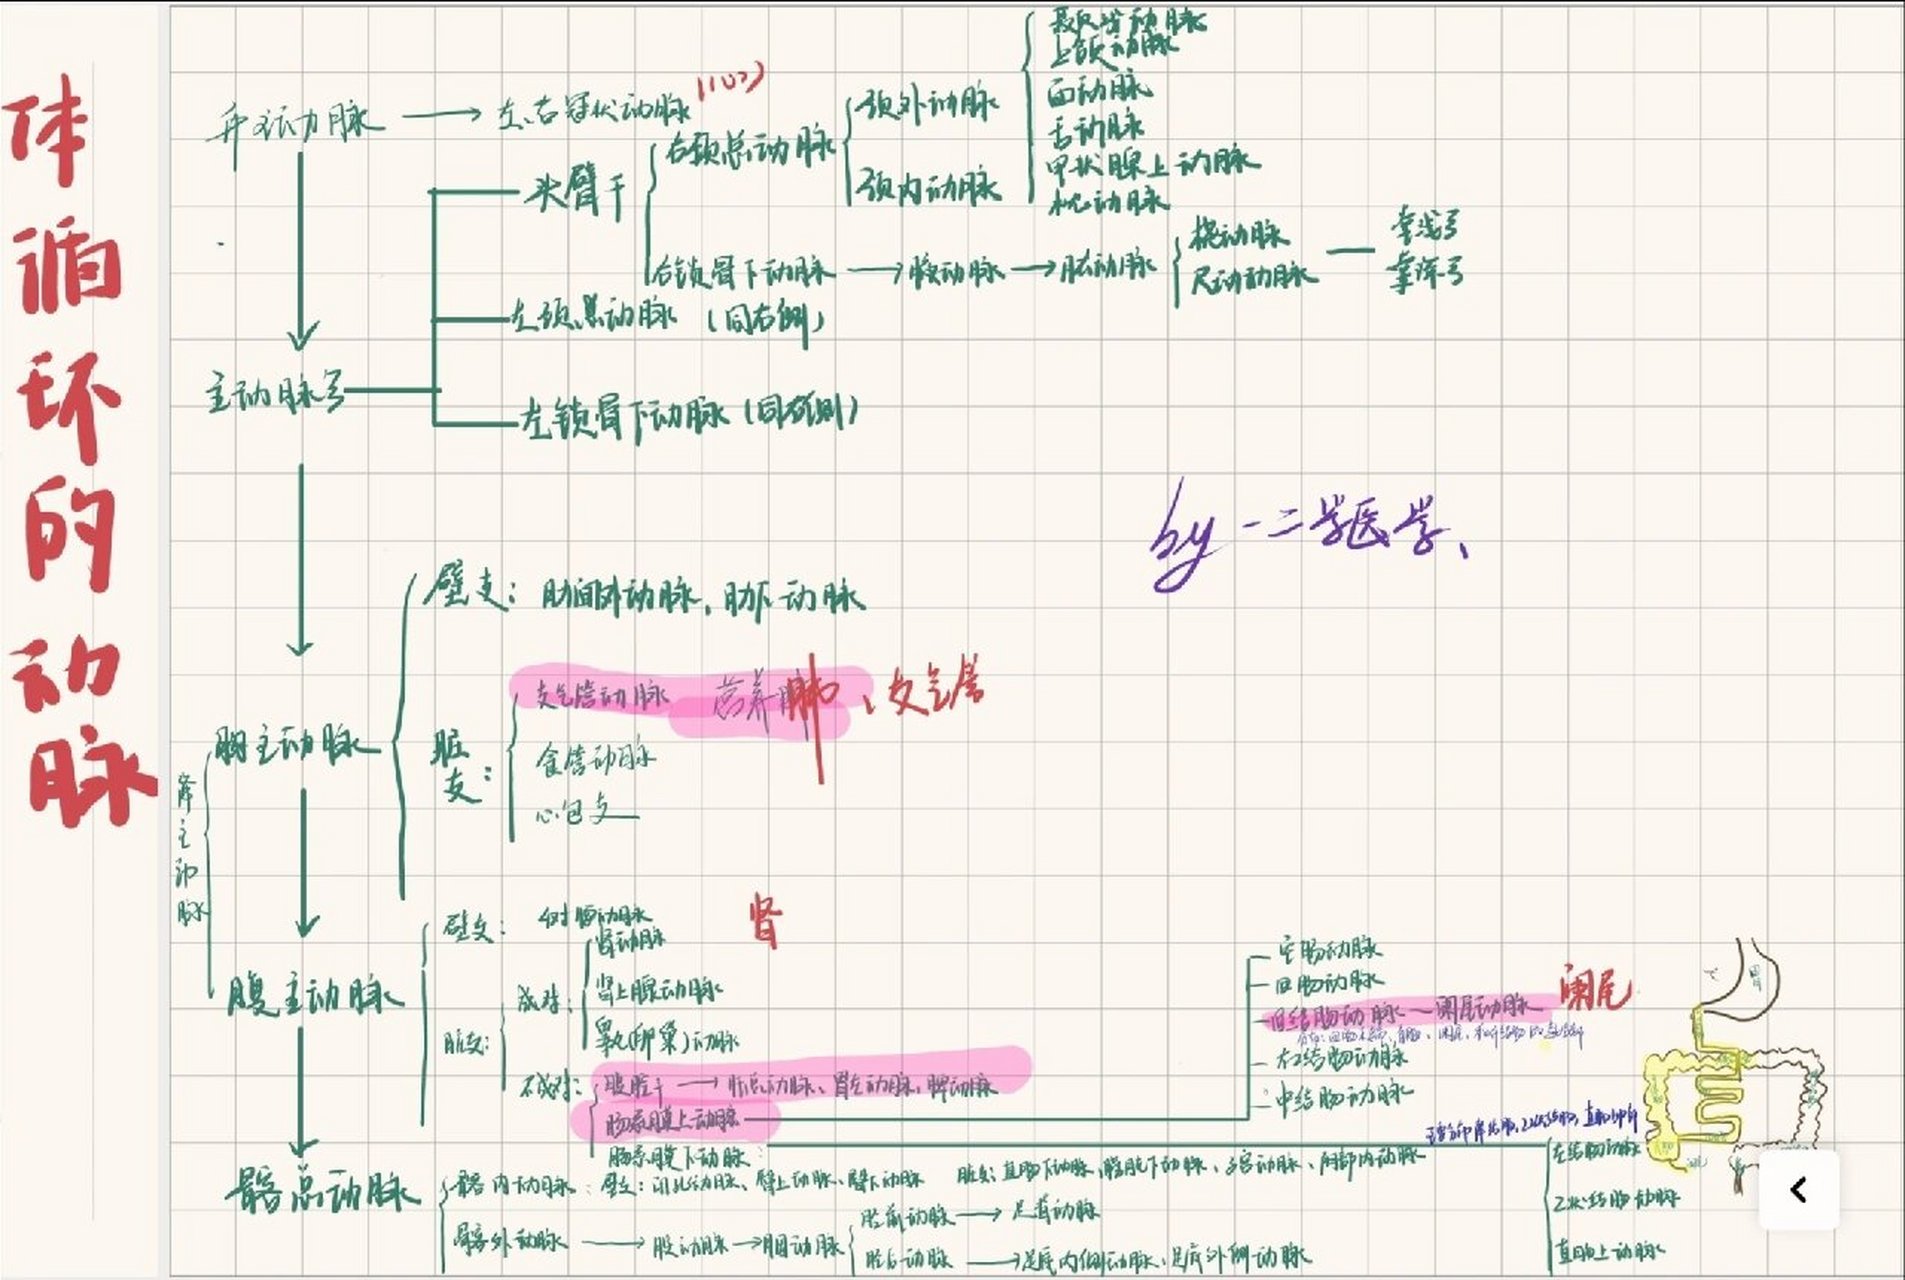 体循环的动脉
升主动脉
左、右冠状动脉
(心)
头臂干
右颈总动脉
颈外动脉
颞浅动脉
上颌动脉
面动脉
舌动脉
甲状腺上动脉
枕动脉
颈内动脉
右锁骨下动脉
腋动脉
肱动脉
桡动脉
尺动动脉
掌浅弓
掌深弓
左颈总动脉 (同右侧)
主动脉弓
左锁骨下动脉 (同右侧)
by 一二学医学、
降主动脉
胸主动脉
壁支: 肋间外动脉, 肋下动脉
脏支:
支气管动脉 营养肺、支气管
食管动脉
心包支
腹主动脉
壁支:
脏支:
成对:
肾动脉
肾
肾上腺动脉
睾丸(卵巢)动脉
不成对:
腹腔干
肝总动脉、胃左动脉, 脾动脉
肠系膜上动脉
空肠动脉
回肠动脉
回结肠动脉 — 阑尾动脉
阑尾
右结肠动脉
中结肠动脉
肠系膜下动脉
左结肠动脉
乙状结肠动脉
直肠上动脉
髂总动脉
髂内动脉: 壁支: 闭孔动脉、臀上动脉、臀下动脉 脏支: 直肠下动脉, 膀胱下动脉、子宫动脉、阴部内动脉
髂外动脉
股动脉
腘动脉
胫前动脉
足背动脉
胫后动脉
足底内侧动脉、足底外侧动脉
胃